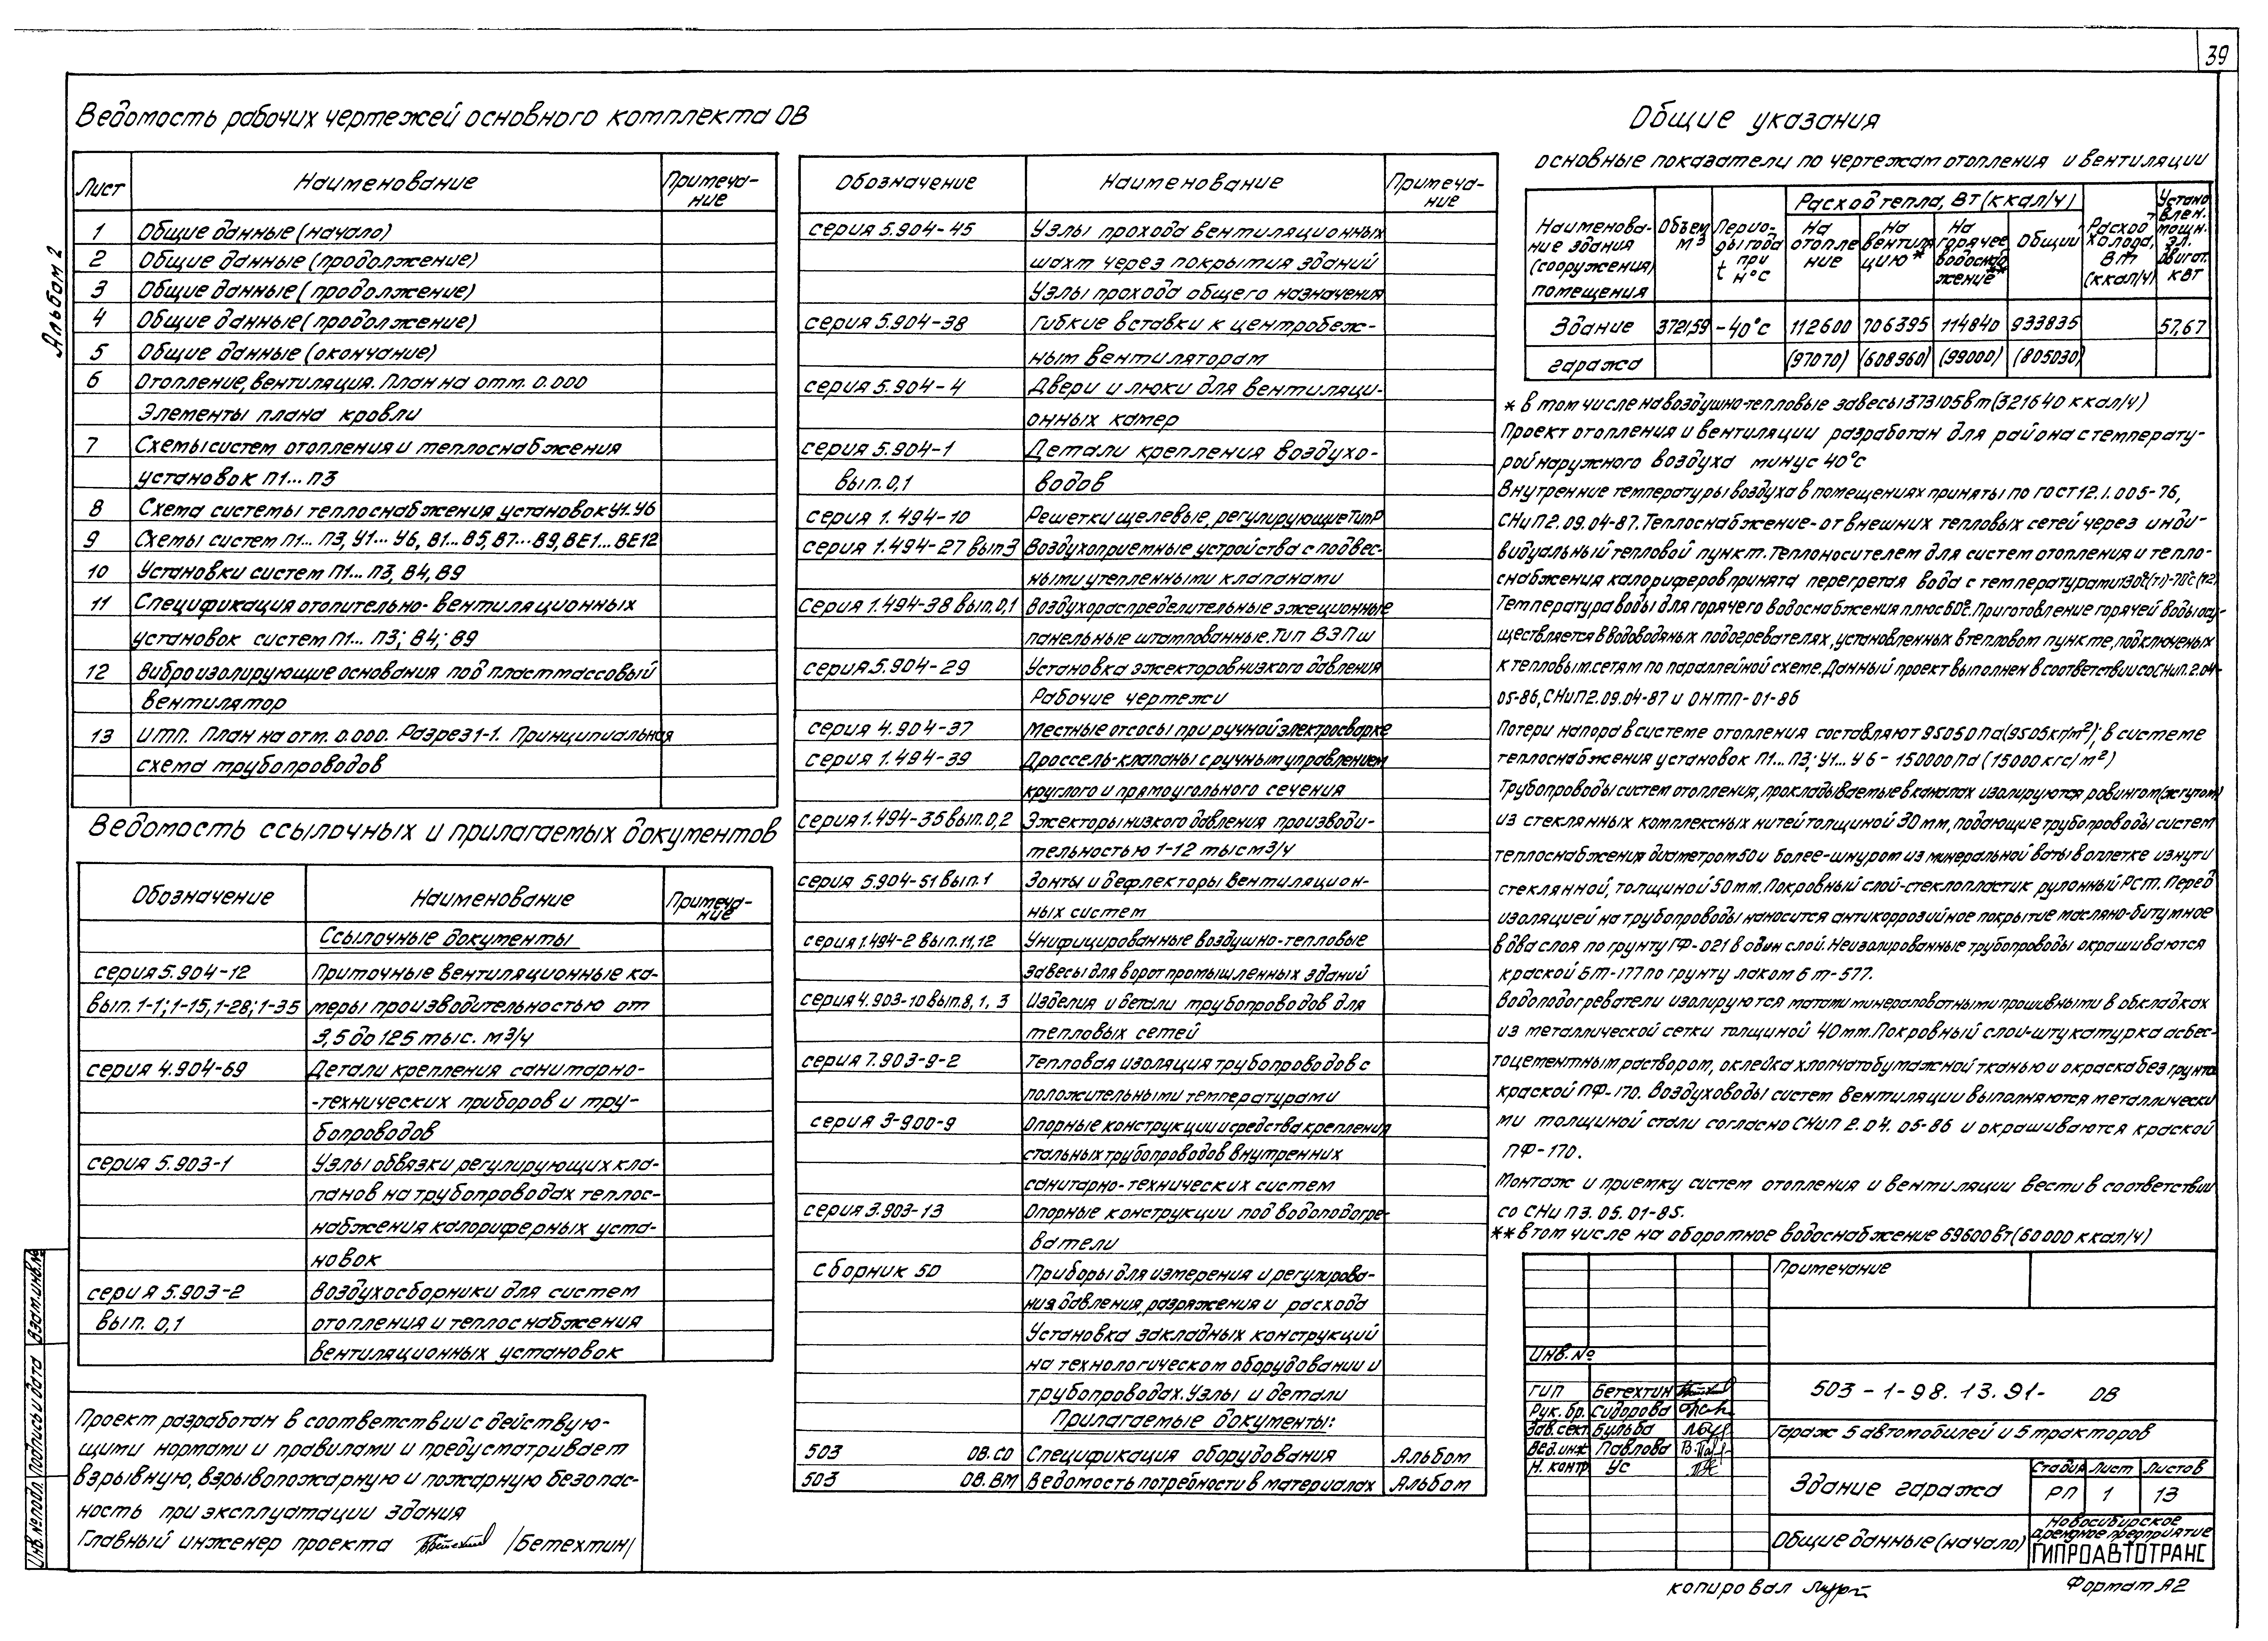 39
Альбом 2
Ведомость рабочих чертежей основного комплекта ОВ
Лист Наименование Примеча-
ние
1 Общие данные (начало)
2 Общие данные (продолжение)
3 Общие данные (продолжение)
4 Общие данные (продолжение)
5 Общие данные (окончание)
6 Отопление, вентиляция. План на отм. 0.000
Элементы плана кровли
7 Схемы систем отопления и теплоснабжения
установок П1... П3
8 Схема системы теплоснабжения установок У1. У6
9 Схемы систем П1... П3, У1... У6, В1... В5, В7... В9, ВЕ1... ВЕ12
10 Установки систем П1... П3, В4, В9
11 Спецификация отопительно-вентиляционных
установок систем П1... П3; В4; В9
12 Виброизолирующие основания под пластмассовый
вентилятор
13 ИТП. План на отм. 0.000. Разрез 1-1. Принципиальная
схема трубопроводов
Ведомость ссылочных и прилагаемых документов
Обозначение Наименование Примеча-
ние
Ссылочные документы
серия 5.904-12 Приточные вентиляционные ка-
вып. 1-1; 1-15, 1-28; 1-35 меры производительностью от
3,5 до 125 тыс. м3/ч
серия 4.904-69 Детали крепления санитарно-
-технических приборов и тру-
бопроводов
серия 5.903-1 Узлы обвязки регулирующих кла-
панов на трубопроводах теплос-
набжения калориферных уста-
новок
серия 5.903-2 Воздухосборники для систем
вып. 0,1 отопления и теплоснабжения
вентиляционных установок
Проект разработан в соответствии с действую-
щими нормами и правилами и предусматривает
взрывную, взрывопожарную и пожарную безопас-
ность при эксплуатации здания
Главный инженер проекта /Бетехтин/
Обозначение Наименование Примеча-
ние
серия 5.904-45 Узлы прохода вентиляционных
шахт через покрытия зданий
Узлы прохода общего назначения
серия 5.904-38 Гибкие вставки к центробеж-
ным вентиляторам
серия 5.904-4 Двери и люки для вентиляци-
онных камер
серия 5.904-1 Детали крепления воздухо-
вып. 0,1 водов
серия 1.494-10 Решетки щелевые, регулирующие Тип Р
серия 1.494-27 вып 3 Воздухоприемные устройства с подвес-
ными утепленными клапанами
Серия 1.494-38 вып. 0,1 Воздухораспределительные эжеционные
панельные штампованные. Тип ВЭПш
серия 5.904-29 Установка эжекторов низкого давления
Рабочие чертежи
серия 4.904-37 Местные отсосы при ручной электросварке
серия 1.494-39 Дроссель-клапаны с ручным управлением
круглого и прямоугольного сечения
серия 1.494-35 вып. 0,2 Эжекторы низкого давления производи-
тельностью 1-12 тыс м3/ч
серия 5.904-51 вып. 1 Зонты и дефлекторы вентиляцион-
ных систем
серия 1.494-2 вып. 11,12 Унифицированные воздушно-тепловые
завесы для ворот промышленных зданий
серия 4.903-10 вып. 8, 1, 3 Изделия и детали трубопроводов для
тепловых сетей
серия 7.903-9-2 Тепловая изоляция трубопроводов с
положительными температурами
серия 3-900-9 Опорные конструкции и средства крепления
стальных трубопроводов внутренних
санитарно-технических систем
серия 3.903-13 Опорные конструкции под водоподогре-
ватели
сборник 50 Приборы для измерения и регулирова-
ния давления, разряжения и расхода
Установка закладных конструкций
на технологическом оборудовании и
трубопроводах. Узлы и детали
Прилагаемые документы:
503 ОВ.СО Спецификация оборудования Альбом
503 ОВ.ВМ Ведомость потребности в материалах Альбом
Общие указания
основные показатели по чертежам отопления и вентиляции
Наименова-
ние здания
(сооружения)
помещения
Объем
м3
Перио-
ды года
при
t н°с
Расход тепла, Вт (ккал/ч)
На
отопле
ние
На
вентиля
цию*
На
горячее
водосна
жение**
Общий
Расход
холода,
Вт
(ккал/ч)
Устано
влен.
мощн.
эл.
двигат.
кВт
Здание 3721,59 -40°с 112600 706395 114840 933835 57,67
гаража (97070) (608960) (99000) (805030)
* в том числе на воздушно-тепловые завесы 373105 вт (321640 ккал/ч)
Проект отопления и вентиляции разработан для района с температу-
рой наружного воздуха минус 40°с
Внутренние температуры воздуха в помещениях приняты по гост 12.1.005-76,
СНиП 2.09.04-87. Теплоснабжение-от внешних тепловых сетей через инди-
видуальный тепловой пункт. Теплоносителем для систем отопления и тепло-
снабжения калориферов принята перегретая вода с температурами 130°с(т1)-70°с(т2)
Температура воды для горячего водоснабжения плюс 60°с. Приготовление горячей воды осу-
ществляется в водоводяных подогревателях, установленных в тепловом пункте, подключеных
к тепловым. сетям по параллейной схеме. Данный проект выполнен в соответствии со СНиП. 2.04-
05-86, СНиП 2.09.04-87 и ОНТП-01-86
Потери напора в системе отопления составляют 95050 Па (9505 кг/м²); в системе
теплоснабжения установок П1... П3; У1... У6 - 150000 Па (15000 кгс/м²)
Трубопроводы систем отопления, прокладываемые в каналах изолируются ровингом (жгутом)
из стеклянных комплексных нитей толщиной 30 мм, подающие трубопроводы систем
теплоснабжения диаметром 50 и более-шнуром из минеральной ваты в оплетке из нути
стеклянной, толщиной 50 мм. Покровный слой-стеклопластик рулонный РСТ. Перед
изоляцией на трубопроводы наносится антикоррозийное покрытие масляно-битумное
в два слоя по грунту ГФ-021 в один слой. Неизолированные трубопроводы окрашиваются
краской БТ-177 по грунту лаком БТ-577.
Водоподогреватели изолируются матами минераловатными прошивными в обкладках
из металлической сетки толщиной 40 мм. Покровный слой-штукатурка асбес-
тоцементным раствором, оклейка хлопчатобумажной тканью и окраска без грунта
краской ПФ-170. Воздуховоды систем вентиляции выполняются металлически
ми толщиной стали согласно СНиП 2.04.05-86 и окрашиваются краской
ПФ-170.
Монтаж и приемку систем отопления и вентиляции вести в соответствии
со СНиП 3.05.01-85.
** в том числе на оборотное водоснабжение 69600 Вт (60000 ккал/ч)
Примечание
Инв. №
ГИП Бетехтин
Рук. бр. Сидорова
Зав. сект Бульба
Вед. инж Павлова
Н. контр Ус
503-1-98.13.91- ОВ
Гараж 5 автомобилей и 5 тракторов
Здание гаража
Стадия Лист Листов
РП 1 13
Общие данные (начало)
Новосибирское
арендное предприятие
ГИПРОАВТОТРАНС
Инв. № подл. Подпись и дата Взам. инв. №
копировал
Формат А2